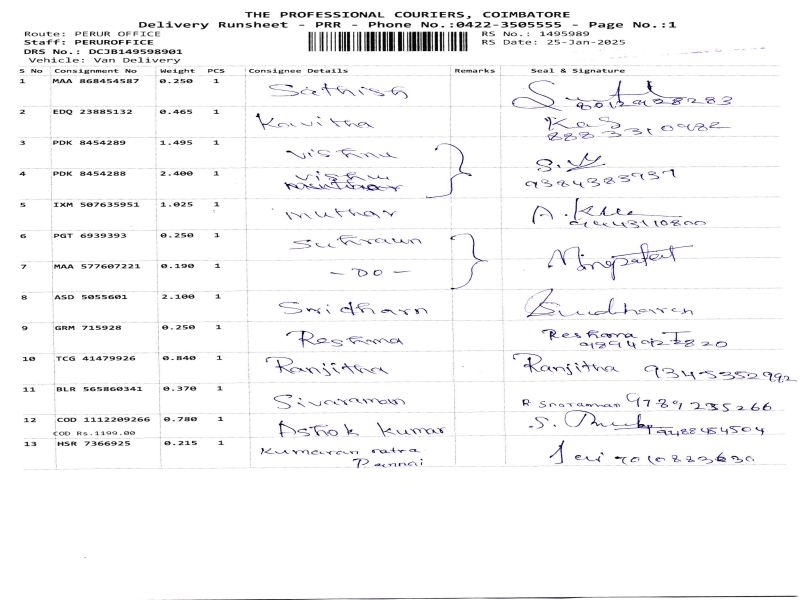 THE PROFESSIONAL COURIERS, COIMBATORE
Delivery Runsheet - PRR - Phone No.:0422-3505555 - Page No.:1
Route: PERUR OFFICE RS No.: 1495989
Staff: PERUROFFICE RS Date: 25-Jan-2025
DRS No.: DCJB149598901
Vehicle: Van Delivery
S No Consignment No Weight PCS Consignee Details Remarks Seal & Signature
1 MAA 868454587 0.250 1 Sathish
2 EDQ 23885132 0.465 1 Kavitha
3 PDK 8454289 1.495 1 Vishnu
4 PDK 8454288 2.400 1 Vishnu 9384383937
5 IXM 507635951 1.025 1 muthar 9443110800
6 PGT 6939393 0.250 1
7 MAA 577607221 0.190 1 - DO -
8 ASD 5055601 2.100 1 Sridharn
9 GRM 715928 0.250 1 Reshma Reshma
10 TCG 41479926 0.840 1 Ranjitha Ranjitha 9345352992
11 BLR 565860341 0.370 1 Sivaraman 9789235266
12 COD 1112209266 0.780 1 Ashok Kumar
COD Rs.1199.00
13 HSR 7366925 0.215 1 Kumaran